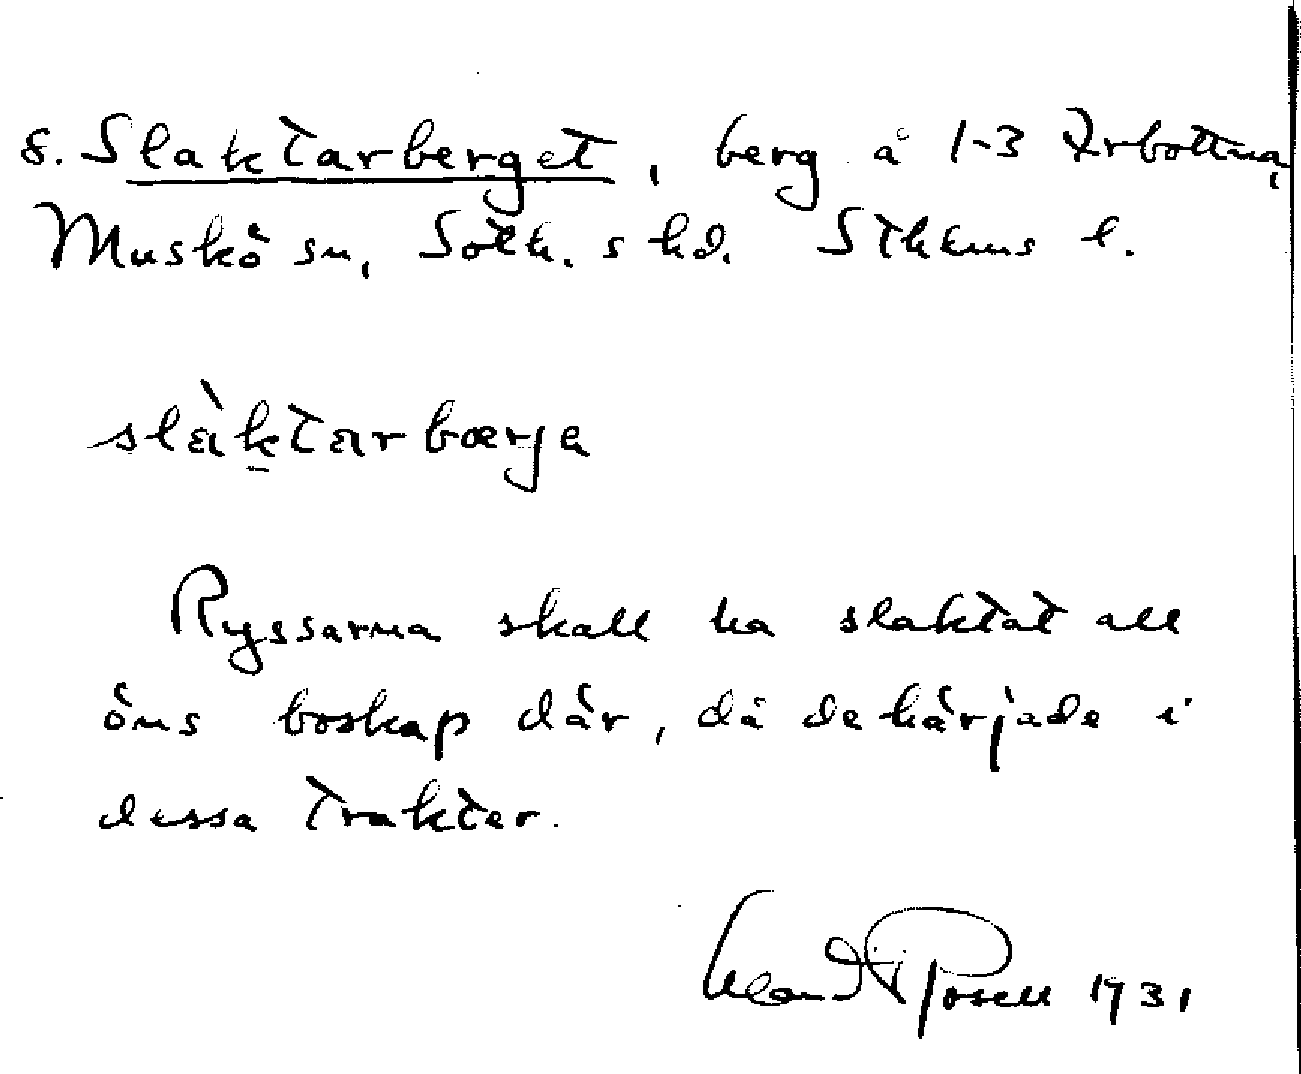 8. Slaktarberget, berg å 1-3 Arbottna,
Muskö sn, Soth. s hd. Sthlms l.
slàktarbærja
Ryssarna skall ha slaktat all
öns boskap där, då de härjade i
dessa trakter.
1931